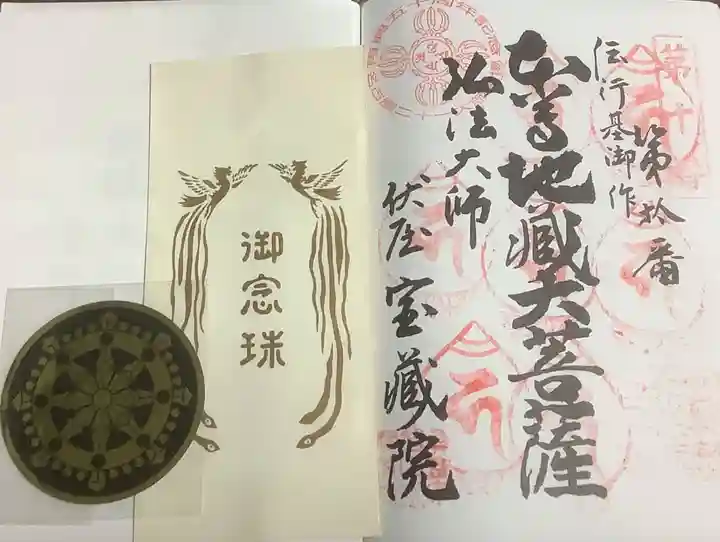 第拾番
伝行基御作
本尊地蔵大菩薩
弘法大師
伏屋 宝蔵院
第十
御念珠